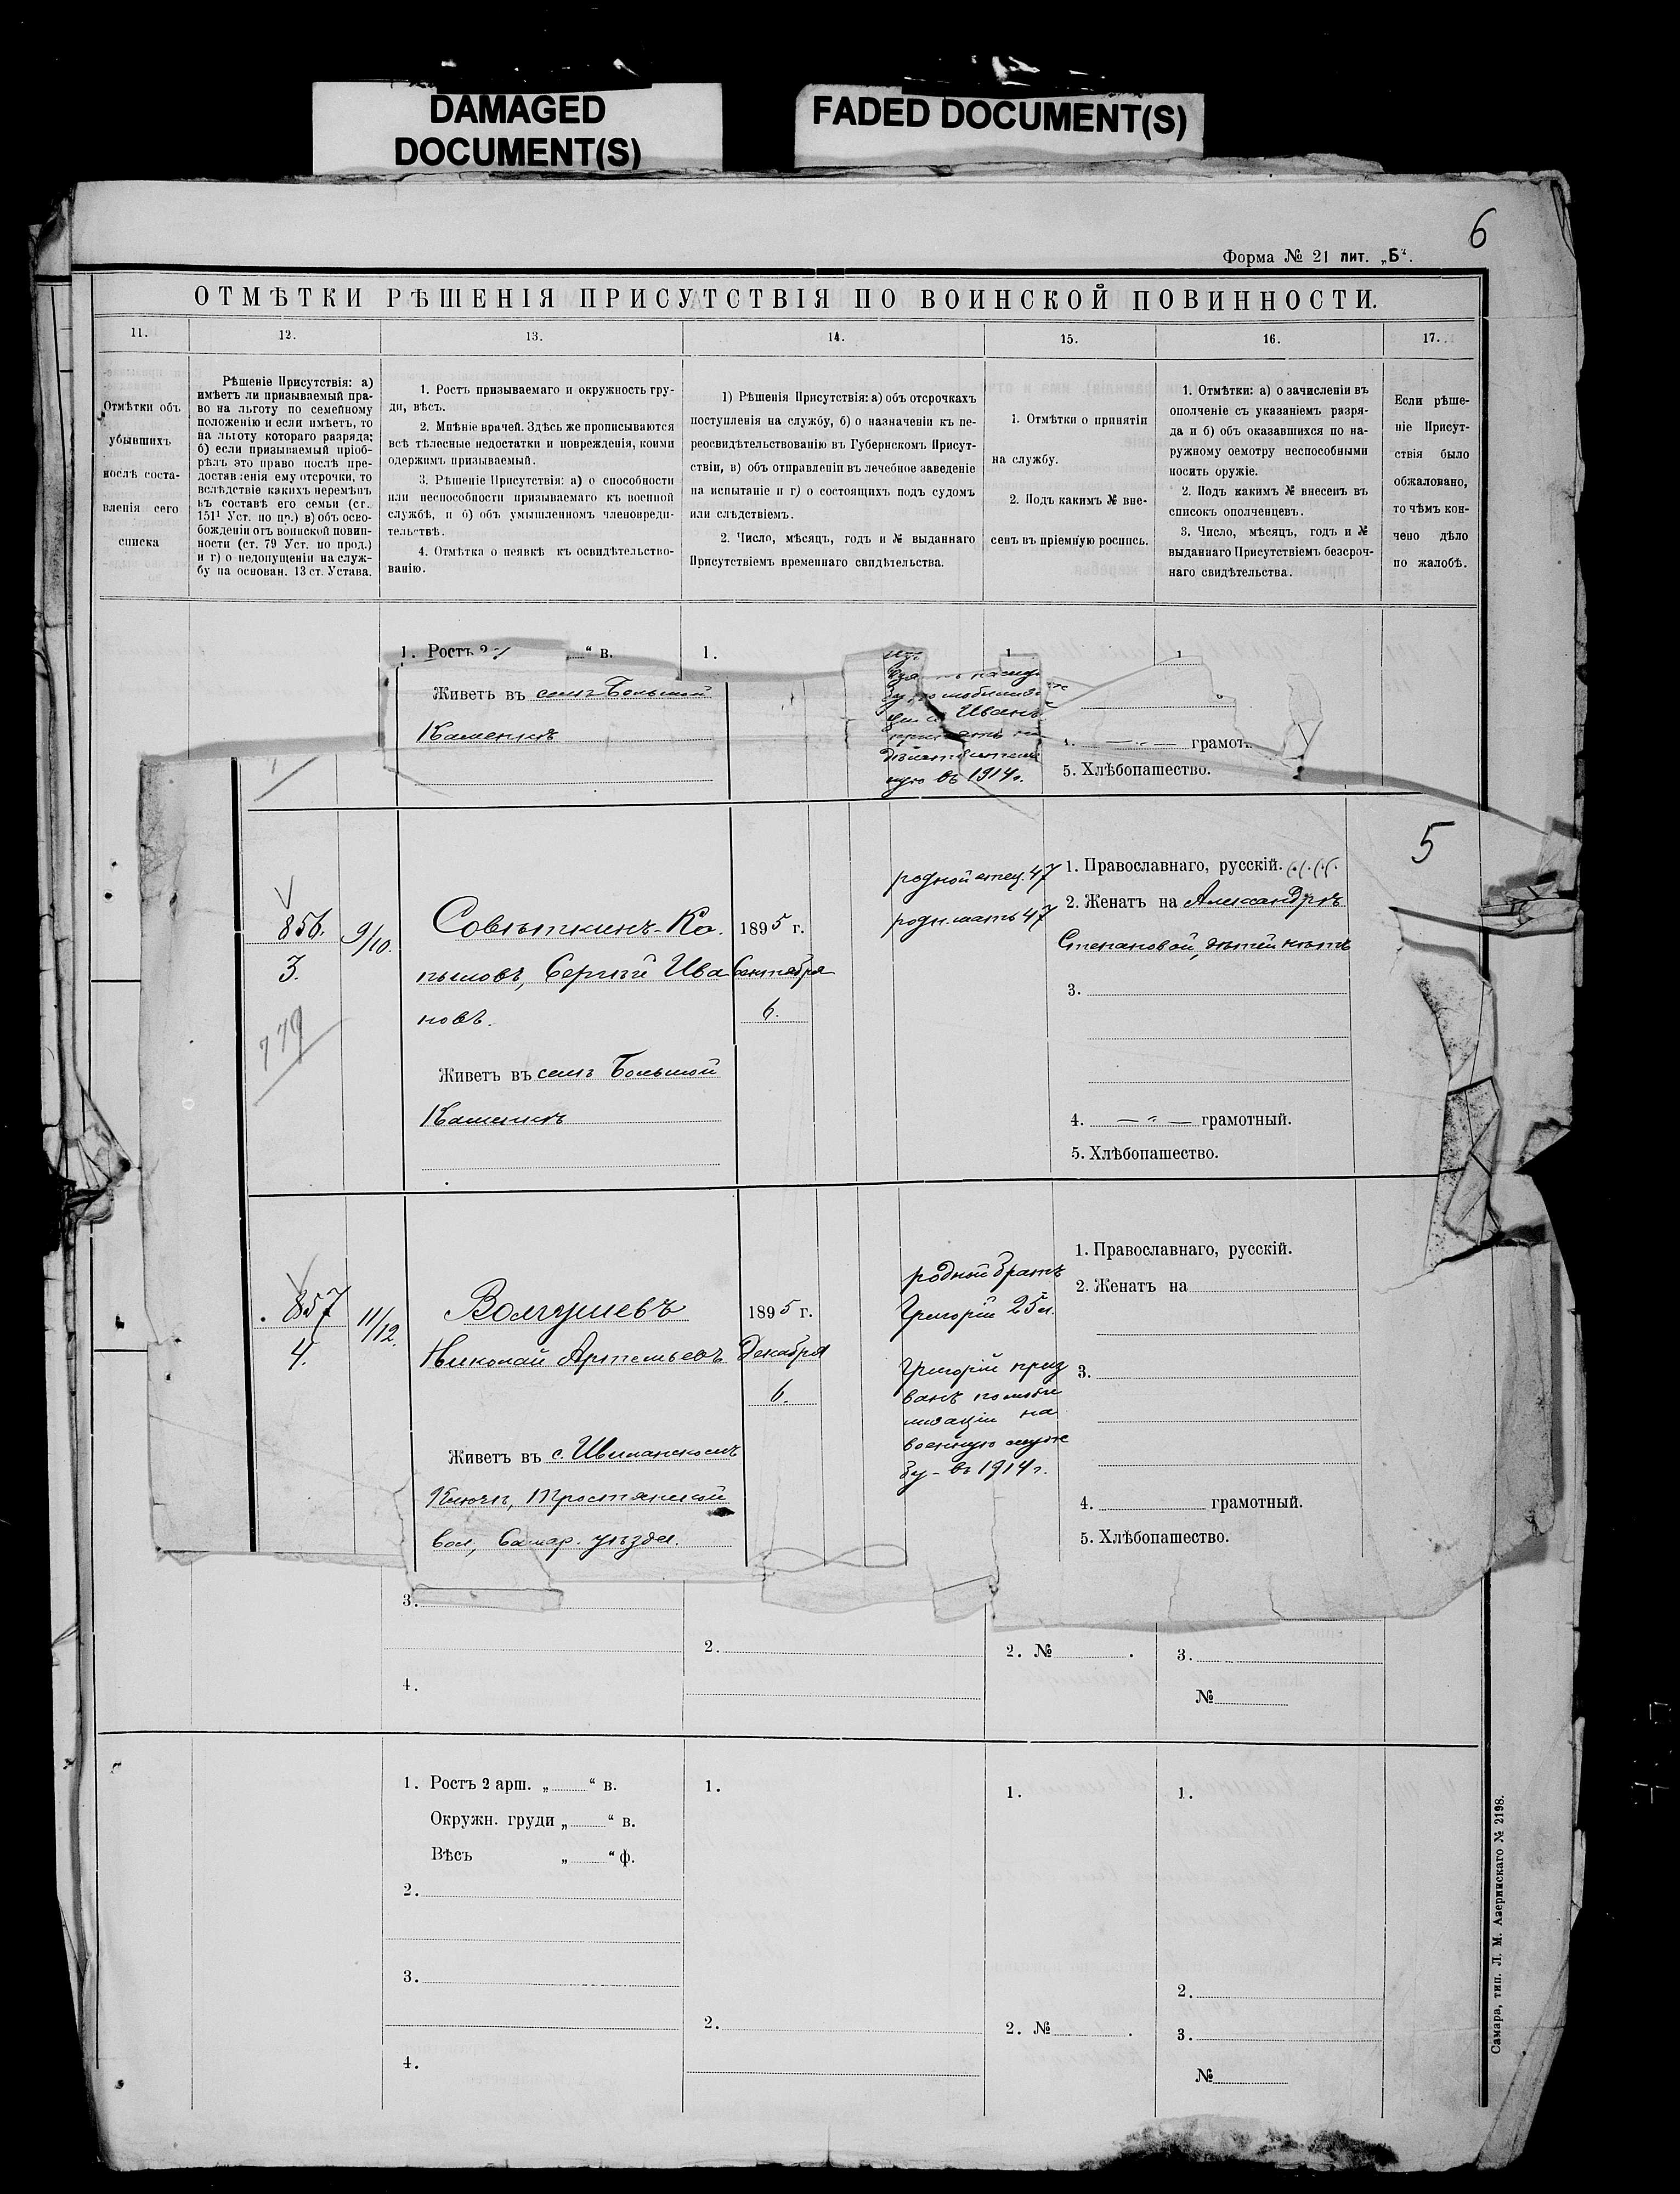 DAMAGED
DOCUMENT(S)
FADED DOCUMENT(S)
6
Форма № 21 лит. „Б“.
ОТМѢТКИ РѢШЕНІЯ ПРИСУТСТВІЯ ПО ВОИНСКОЙ ПОВИННОСТИ.
11.
12.
13.
14.
15.
16.
17.
Отмѣтки объ
убывшихъ
послѣ соста-
вленія сего
списка
Рѣшеніе Присутствія: а)
имѣетъ ли призываемый пра-
во на льготу по семейному
положенію и если имѣетъ, то
на льготу котораго разряда;
б) если призываемый пріоб-
рѣлъ это право послѣ пре-
доставленія ему отсрочки, то
вслѣдствіе какихъ перемѣнъ
въ составѣ его семьи (ст.
151¹ Уст. по пр.) в) объ осво-
божденіи отъ воинской повин-
ности (ст. 79 Уст. по прод.)
и г) о недопущеніи на служ-
бу на основан. 13 ст. Устава.
1. Ростъ призываемаго и окружность гру-
ди, вѣсъ.
2. Мнѣніе врачей. Здѣсь же прописываются
всѣ тѣлесные недостатки и поврежденія, коими
одержимъ призываемый.
3. Рѣшеніе Присутствія: а) о способности
или неспособности призываемаго къ военной
службѣ, и б) объ умышленномъ членовреди-
тельствѣ.
4. Отмѣтка о неявкѣ къ освидѣтельство-
ванію.
1) Рѣшенія Присутствія: а) объ отсрочкахъ
поступленія на службу, б) о назначеніи къ пе-
реосвидѣтельствованію въ Губернскомъ Присут-
ствіи, в) объ отправленіи въ лечебное заведеніе
на испытаніе и г) о состоящихъ подъ судомъ
или слѣдствіемъ.
2. Число, мѣсяцъ, годъ и № выданнаго
Присутствіемъ временнаго свидѣтельства.
1. Отмѣтки о принятіи
на службу.
2. Подъ какимъ № вне-
сенъ въ пріемную роспись.
1. Отмѣтки: а) о зачисленіи въ
ополченіе съ указаніемъ разря-
да и б) объ оказавшихся по на-
ружному осмотру неспособными
носить оружіе.
2. Подъ какимъ № внесенъ въ
списокъ ополченцевъ.
3. Число, мѣсяцъ, годъ и №
выданнаго Присутствіемъ безсроч-
наго свидѣтельства.
Если рѣше-
ніе Присут-
ствія было
обжаловано,
то чѣмъ кон-
чено дѣло
по жалобѣ.
1. Ростъ 2 “ в.
1.
1
1
Живетъ въ селѣ Большой
Каменкѣ
Иванъ
въ 1914 г.
4. — " — грамот.
5. Хлѣбопашество.
5
856.
3.
779
9/10.
Совѣткинъ-Ко.
пыловъ, Сергѣй Ива
новъ.
1895 г.
Сентября
6.
Живетъ въ селѣ Большой
Каменкѣ
родной отец. 47
родн. мать 47
1. Православнаго, русскій.
2. Женатъ на Александрѣ
Степановой, дѣтей нѣтъ
3.
4. — " — грамотный.
5. Хлѣбопашество.
857
4.
11/12.
Волгушевъ
Николай Артемьевъ
1895 г.
Декабря
6.
Живетъ въ с.
Ключѣ, Тростянской
вол., Самар. уѣзда.
родной братъ
Григорій 25 л.
Григорій приз
ванъ по моби
лизаціи на
военную служ
бу - въ 1914 г.
1. Православнаго, русскій.
2. Женатъ на
3.
4. грамотный.
5. Хлѣбопашество.
3.
4.
2.
2. № .
3.
№
1. Ростъ 2 арш. „ “ в.
Окружн. груди „ “ в.
Вѣсъ „ “ ф.
2.
3.
4.
1.
2.
1.
2. № .
1.
2.
3.
№
Самара, тип. Л. М. Азеринскаго № 2198.